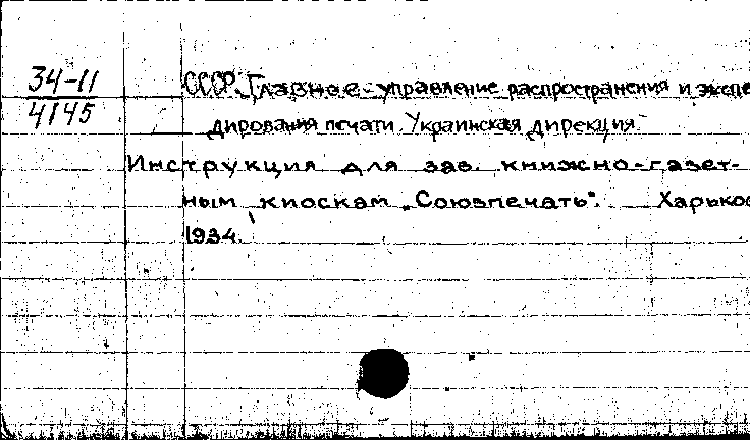 34-11
4145
СССР. Главное управление распространения и экспе
дирования печати. Украинская дирекция.
Инструкция для зав. книжно-газет-
ным киоскам „Союзпечать“. Харьков
1934.